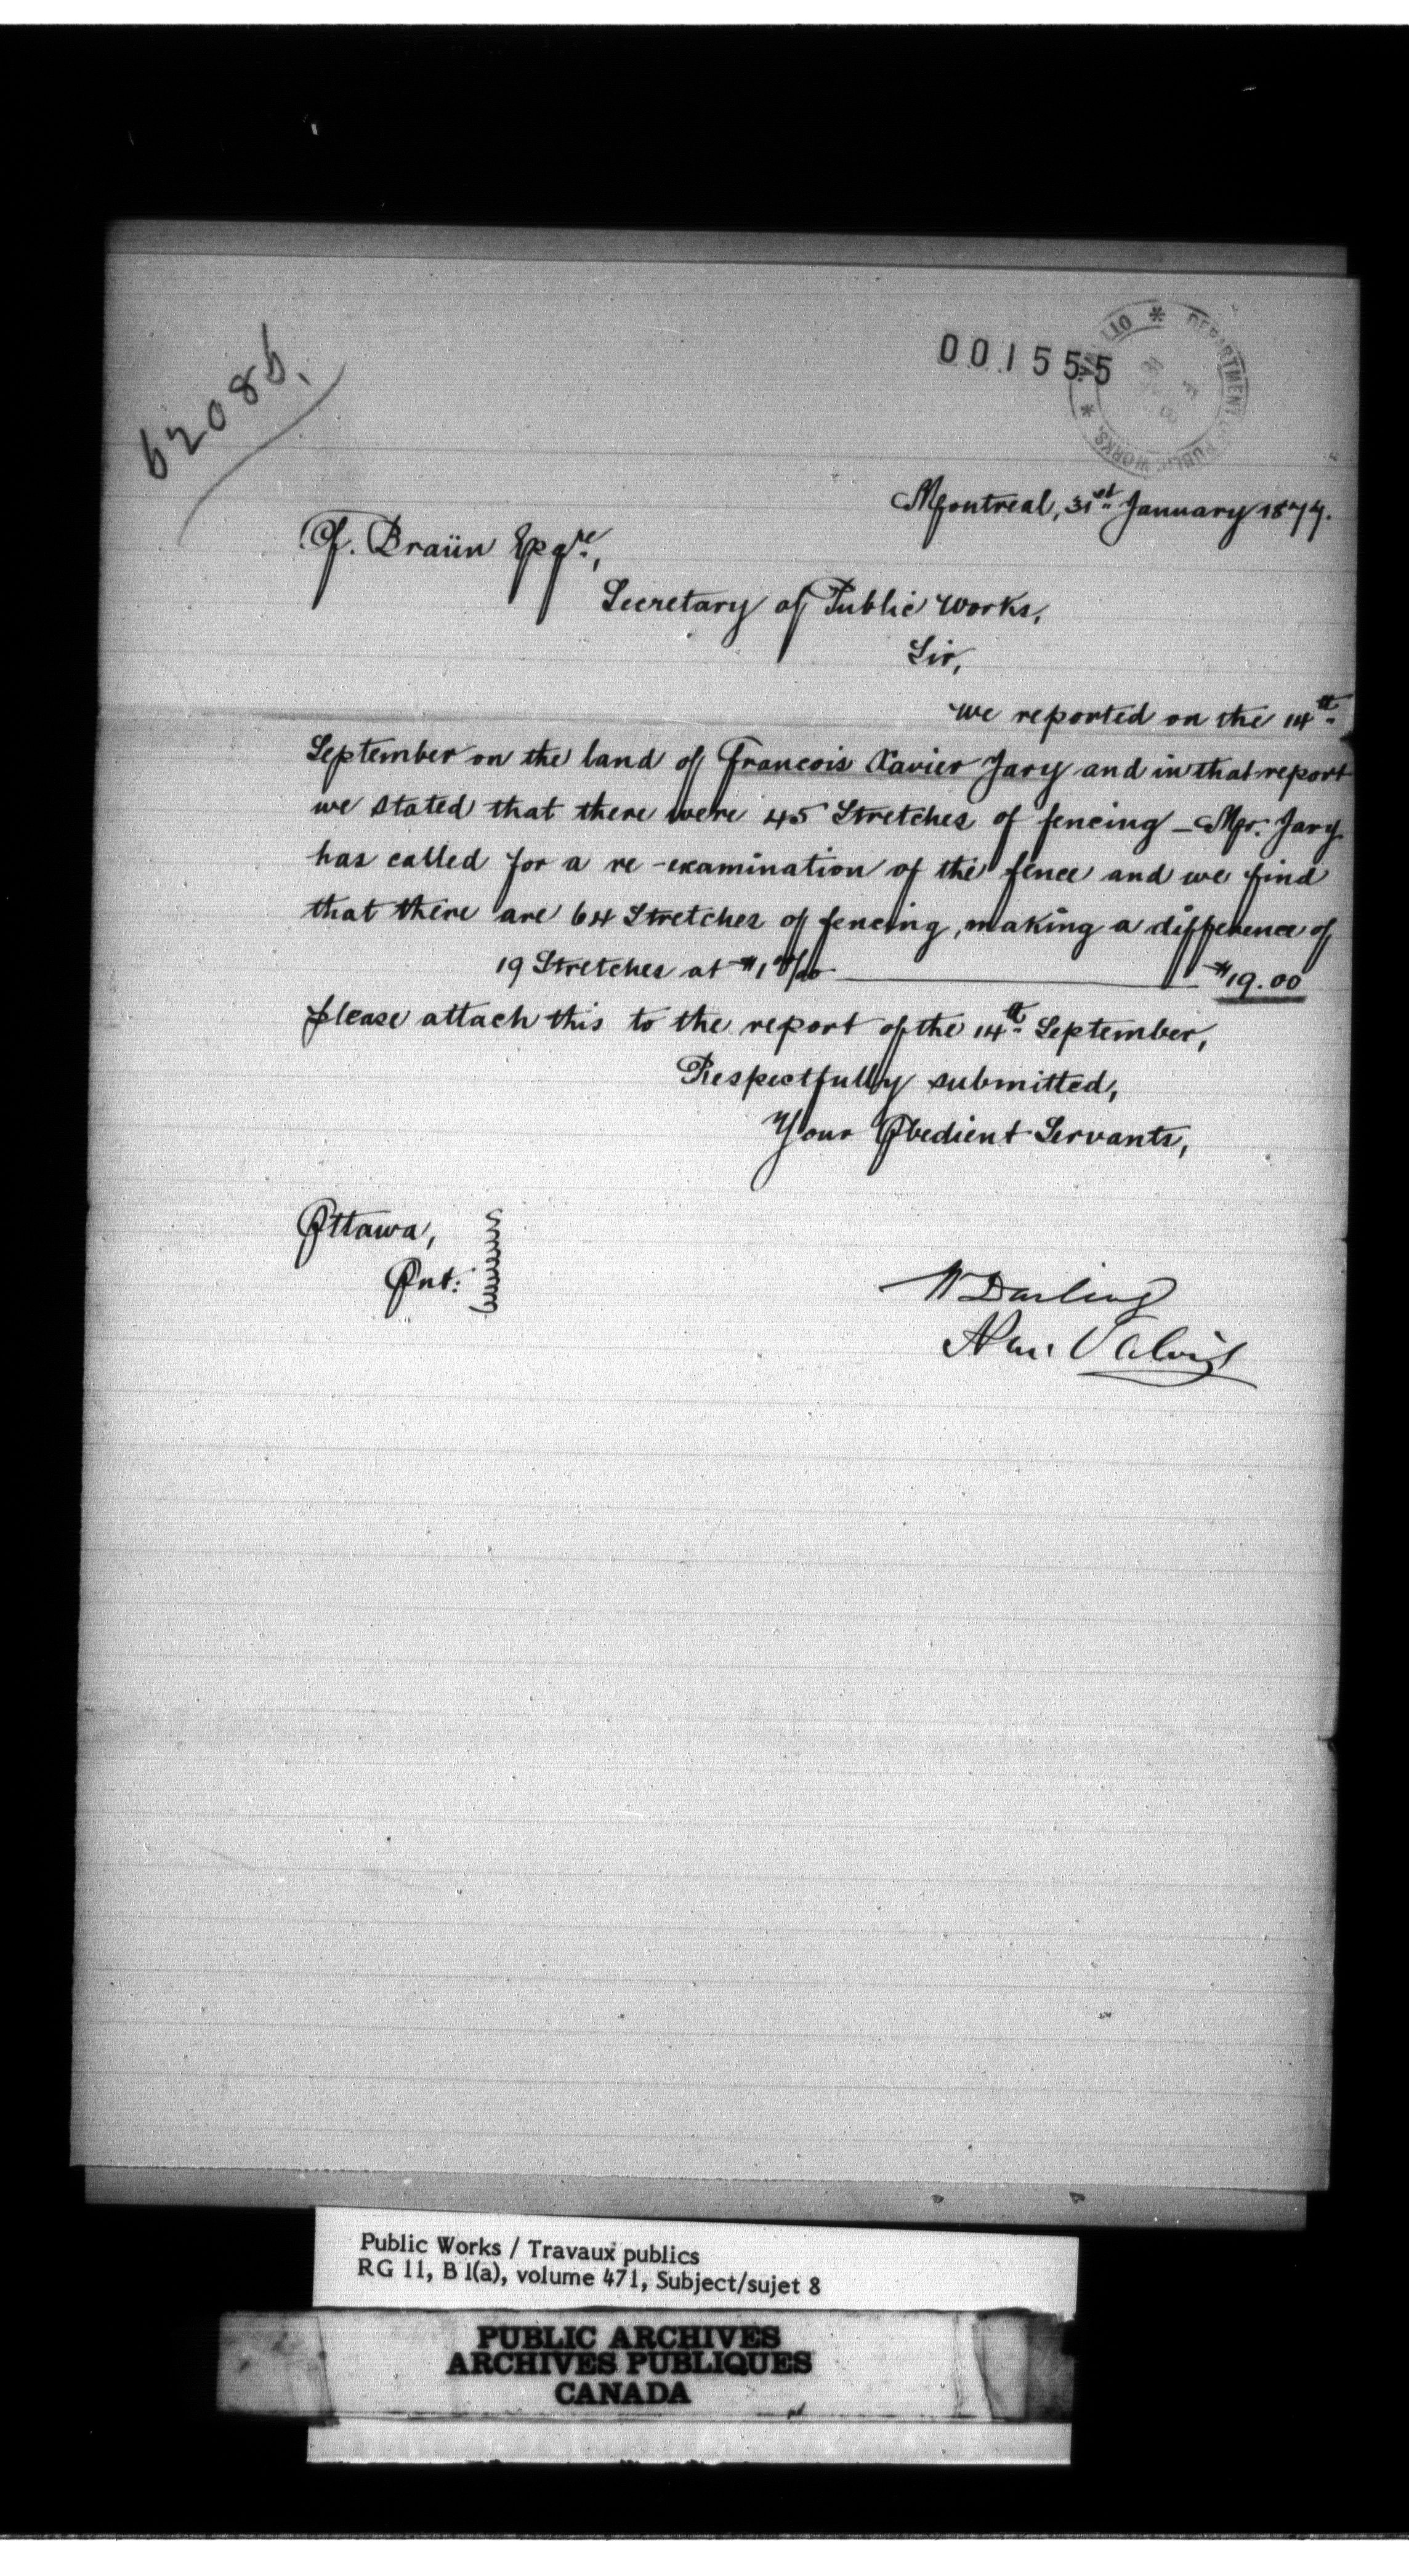 62086.
001555
DEPARTMENT OF PUBLIC WORKS.
Montreal, 31st January 1877.
F. Braün Esqre,
Secretary of Public Works,
Sir,
We reported on the 14th
September on the land of Francois Xavier Jary and in that report
we stated that there were 45 Stretches of fencing – Mr. Jary
has called for a re-examination of the fence and we find
that there are 64 Stretches of fencing, making a difference of
19 Stretches at $1 00/00 $19.00
please attach this to the report of the 14th September,
Respectfully submitted,
Your Obedient Servants,
Ottawa,
Ont:
W Darling
Public Works / Travaux publics
RG 11, B 1(a), volume 471, Subject/sujet 8
PUBLIC ARCHIVES
ARCHIVES PUBLIQUES
CANADA